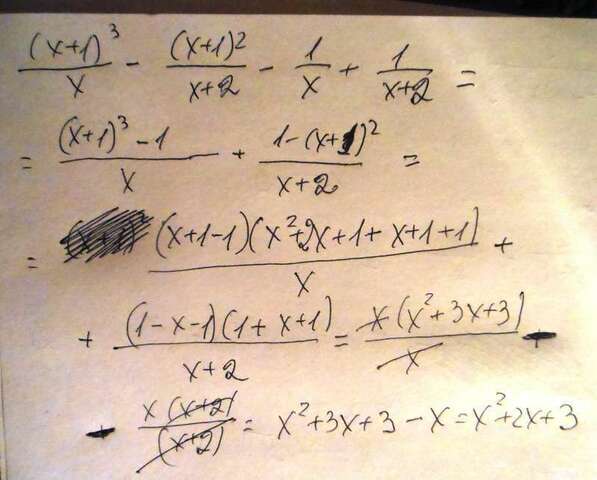 (x+1)³/x - (x+1)²/(x+2) - 1/x + 1/(x+2) =
= ((x+1)³-1)/x + (1-(x+1)²)/(x+2) =
= (x+1-1)(x²+2x+1+x+1+1)/x +
+ (1-x-1)(1+x+1)/(x+2) = x(x²+3x+3)/x -
- x(x+2)/(x+2) = x²+3x+3-x = x²+2x+3